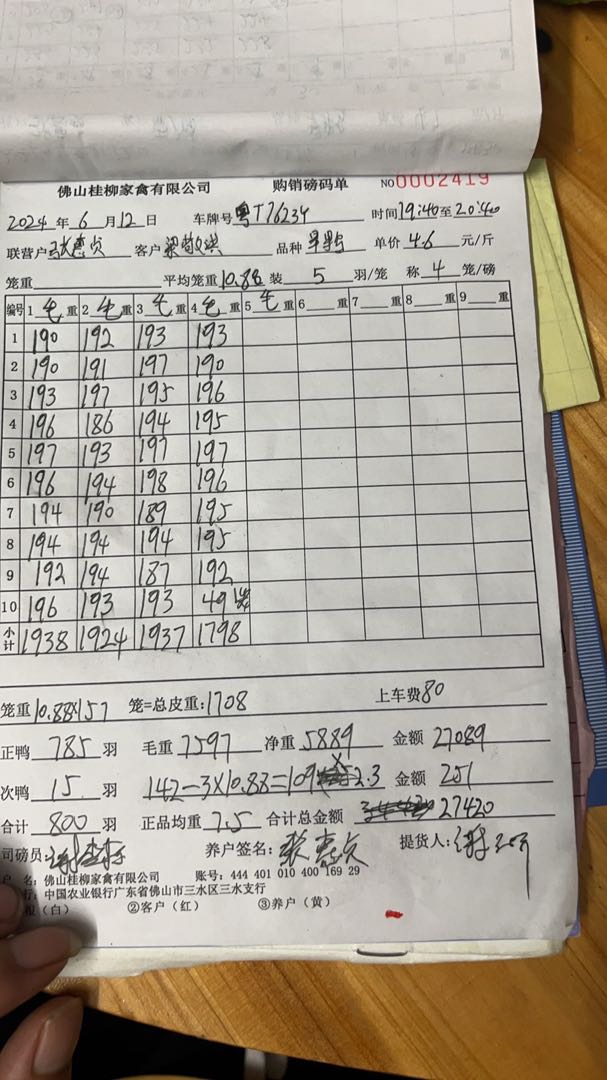 佛山桂柳家禽有限公司 购销磅码单 NO 0002419
2024 年 6 月 12 日 车牌号 粤T76234 时间 19:40 至 20:40
联营户 张惠贞 客户 品种 单价 4.6 元/斤
笼重 平均笼重 10.88 装 5 羽/笼 称 4 笼/磅
编号 1 毛 重 2 毛 重 3 毛 重 4 毛 重 5 毛 重 6 重 7 重 8 重 9 重
1 190 192 193 193
2 190 191 197 190
3 193 197 195 196
4 196 186 194 195
5 197 193 197 197
6 196 194 198 196
7 194 190 189 195
8 194 194 194 195
9 192 194 187 192
10 196 193 193 49 1笼
小计 1938 1924 1937 1798
笼重 10.88×157 笼=总皮重: 1708 上车费 80
正鸭 785 羽 毛重 7597 净重 5889 金额 27089
次鸭 15 羽 142-3×10.88=109 × 2.3 金额 251
合计 800 羽 正品均重 7.5 合计总金额 27420
司磅员: 养户签名: 张惠贞 提货人:
户 名: 佛山桂柳家禽有限公司 账号: 444 401 010 400 169 29
行: 中国农业银行广东省佛山市三水区三水支行
根(白) ②客户(红) ③养户(黄)